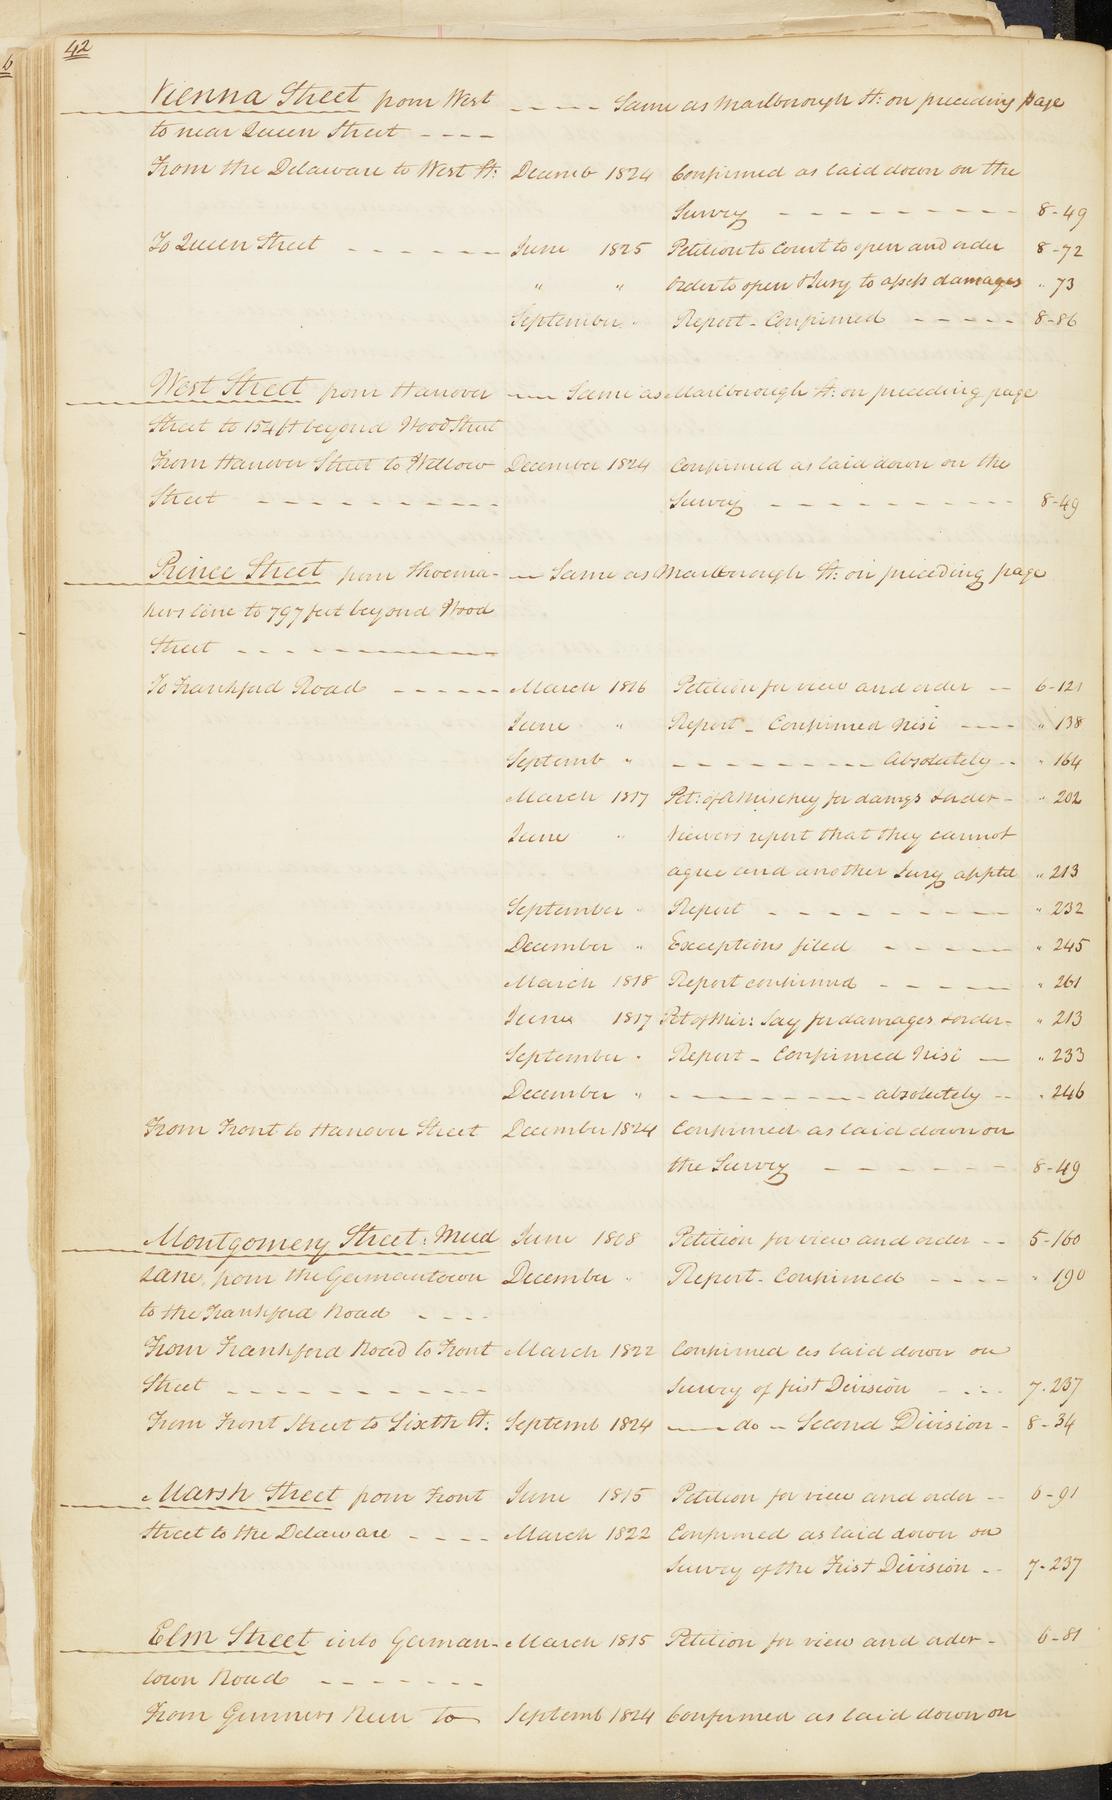 42
Vienna Street from West ---- Same as Marlborough St: on preceding page
to near Queen Street ----
From the Delaware to West St: Decemb 1824 Confirmed as laid down on the
Survey - - - - - - - - - 8-49
To Queen Street - - - - - - June 1825 Petition to Court to open and order 8-72
" " Order to open & Jury to assess damages " 73
September " Report - Confirmed - - - - - 8-86
West Street from Hanover --- Same as Marlborough St: on preceding page
Street to 154 ft beyond Wood Street
From Hanover Street to Willow December 1824 Confirmed as laid down on the
Street - - - - - - - - Survey - - - - - - - - 8-49
Prince Street from Shoema- -- Same as Marlborough St: on preceding page
kers line to 797 feet beyond Wood
Street - - - - - - - -
To Frankford Road - - - - - - March 1816 Petition for view and order -- 6-121
June " Report - Confirmed Nisi ---- " 138
Septemb " - - - - - - - - - Absolutely -- " 164
March 1817 Pet: of for damgs & order - " 202
June " Viewers report that they cannot
agree and another Jury apptd " 213
September " Report - - - - - - - - - " 232
December " Exceptions filed - - - - - " 245
March 1818 Report confirmed - - - - " 261
June 1817 Pet of for damages & order - " 213
September " Report - Confirmed Nisi -- " 233
December " - - - - - - - - - absolutely -- " 246
From Front to Hanover Street December 1824 Confirmed as laid down on
the Survey - - - - - - 8-49
Montgomery Street: Mud June 1808 Petition for view and order -- 5-160
Lane, from the Germantown December " Report - Confirmed - - - - " 190
to the Frankford Road - - - -
From Frankford Road to Front March 1822 Confirmed as laid down on
Street - - - - - - - - - - Survey of first Division - - - - 7-237
From Front Street to Sixth St: Septemb 1824 --- do -- Second Division - 8-34
Marsh Street from Front June 1815 Petition for view and order -- 6-91
Street to the Delaware - - - - March 1822 Confirmed as laid down on
Survey of the First Division -- 7-237
Elm Street into German- March 1815 Petition for view and order - 6-81
town Road - - - - - - -
From Gunners Run to Septemb 1824 Confirmed as laid down on